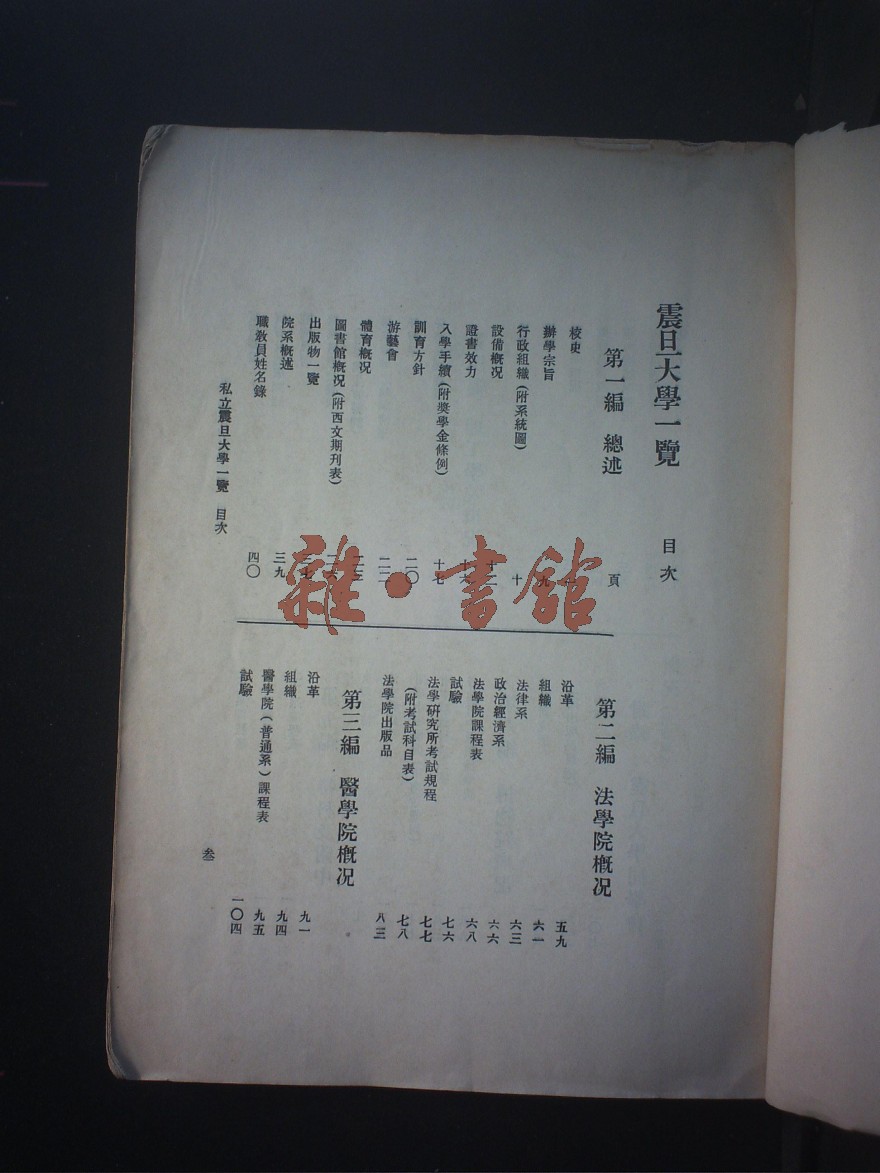 震旦大學一覽 目次
第一編 總述 頁
校史 一
辦學宗旨 九
行政組織(附系統圖) 十
設備概况 十二
證書效力 十六
入學手續(附獎學金條例) 十七
訓育方針 二〇
游藝會 二二
體育概况 二三
圖書館概况(附西文期刊表)
出版物一覽
院系概述 三九
職教員姓名錄 四〇
第二編 法學院概况
沿革 五九
組織 六一
法律系 六三
政治經濟系 六六
法學院課程表 六八
試驗 七六
法學研究所考試規程 七七
(附考試科目表) 七八
法學院出版品 八三
第三編 醫學院概况
沿革 九一
組織 九四
醫學院(普通系)課程表 九五
試驗 一〇四
私立震旦大學一覽 目次 叁
雜·書館